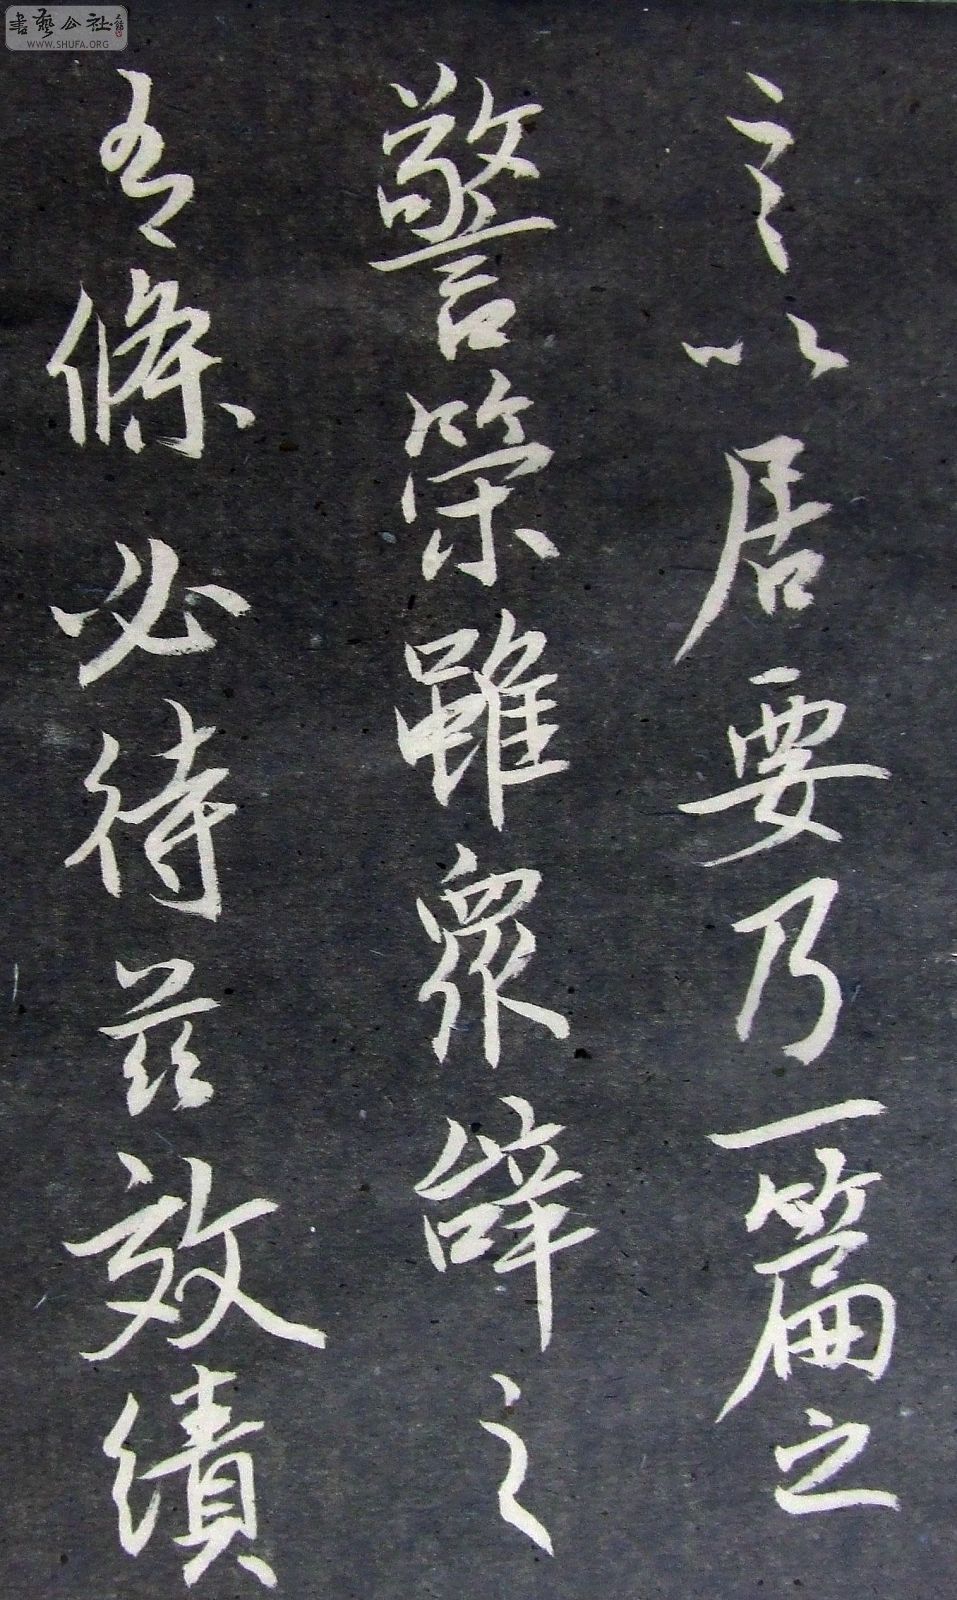 言以居要乃一篇之
警策雖衆辭之
有條必待茲效績
書藝公社
WWW.SHUFA.ORG